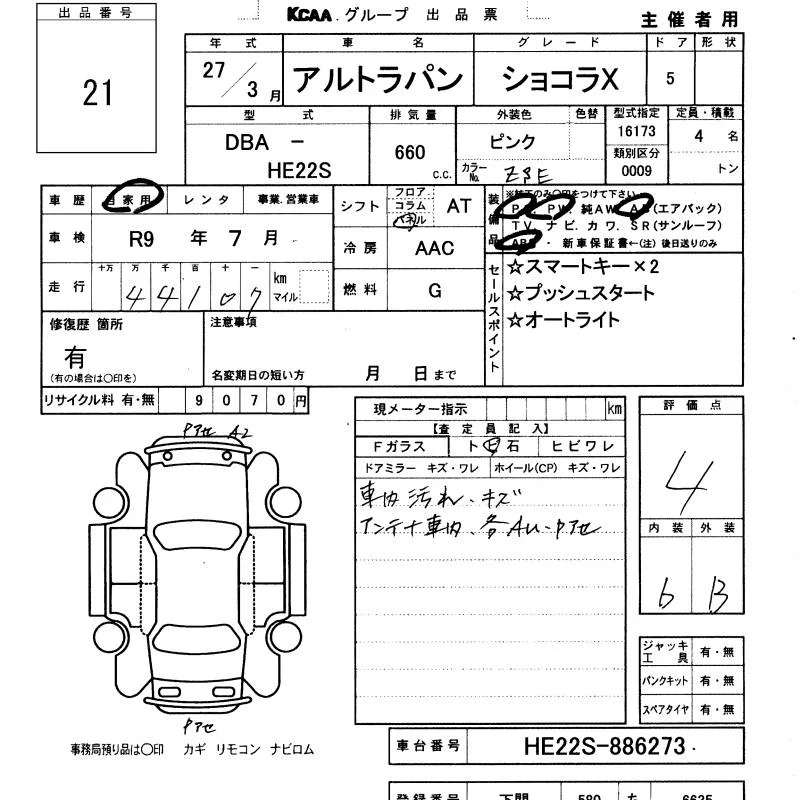 出品番号
21
KCAA グループ 出品票
主催者用
年式 車名 グレード ドア 形状
27/3月 アルトラパン ショコラX 5
型式 排気量 外装色 色替 型式指定 定員・積載
DBA - HE22S
660 c.c.
ピンク
カラーNo.
16173
類別区分
0009
4 名
トン
車歴 自家用 レンタ 事業.営業車
シフト フロア コラム パネル AT
装備品
※純正のみ○印をつけて下さい
PS. PW. 純AW. AB(エアバック)
TV. ナビ. カワ. SR(サンルーフ)
ABS ・ 新車保証書←(注) 後日送りのみ
車検 R9 年 7 月
冷房 AAC
走行 十万 万 千 百 十 一
44107
km
マイル
燃料 G
セールスポイント
☆スマートキー×2
☆プッシュスタート
☆オートライト
修復歴 箇所
有
(有の場合は○印を)
注意事項
名変期日の短い方 月 日まで
リサイクル料 有・無 9070円
現メーター指示 km
【査定員記入】
Fガラス ト ビ 石 ヒビワレ
ドアミラー キズ・ワレ ホイール(CP) キズ・ワレ
車内汚れ、キズ
アンテナ車内、各AU、Pアセ
評価点
4
内装 外装
b B
Pアセ A2
Pアセ
事務局預り品は○印 カギ リモコン ナビロム
ジャッキ工具 有・無
パンクキット 有・無
スペアタイヤ 有・無
車台番号 HE22S-886273
登録番号 下関 580 6635